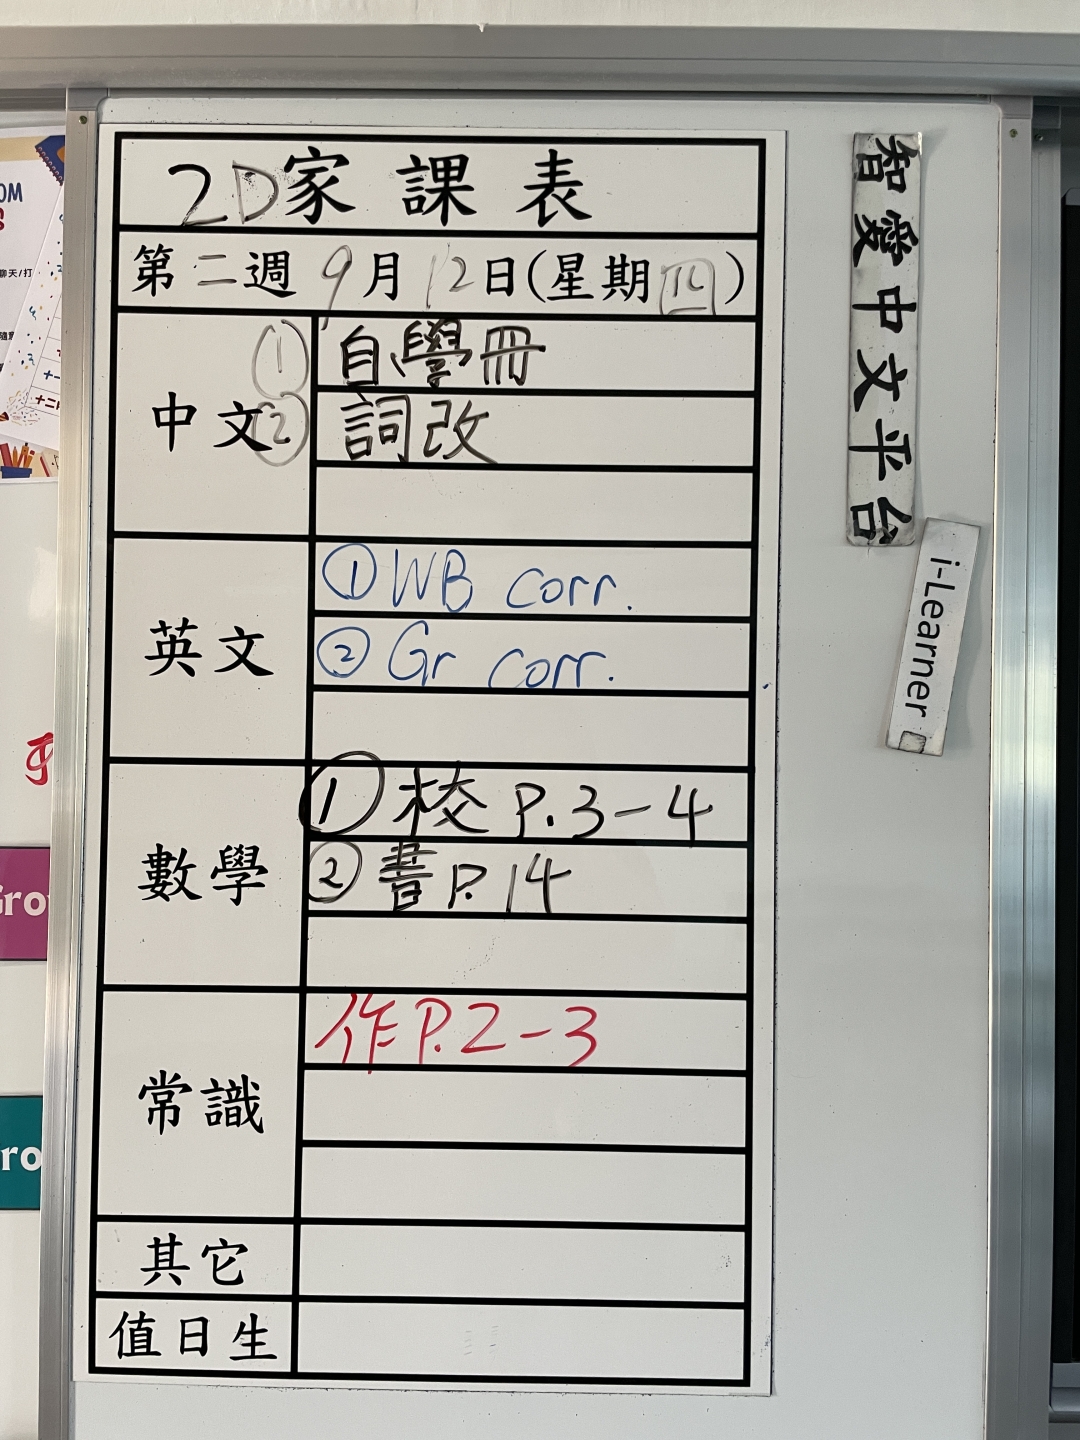 2D家課表
第二週 9月12日(星期四)
中文
① 自學冊
② 詞改
英文
① WB corr.
② Gr corr.
數學
① 校 P.3-4
② 書 P.14
常識
作 P.2-3
其它
值日生
智愛中文平台
i-Learner